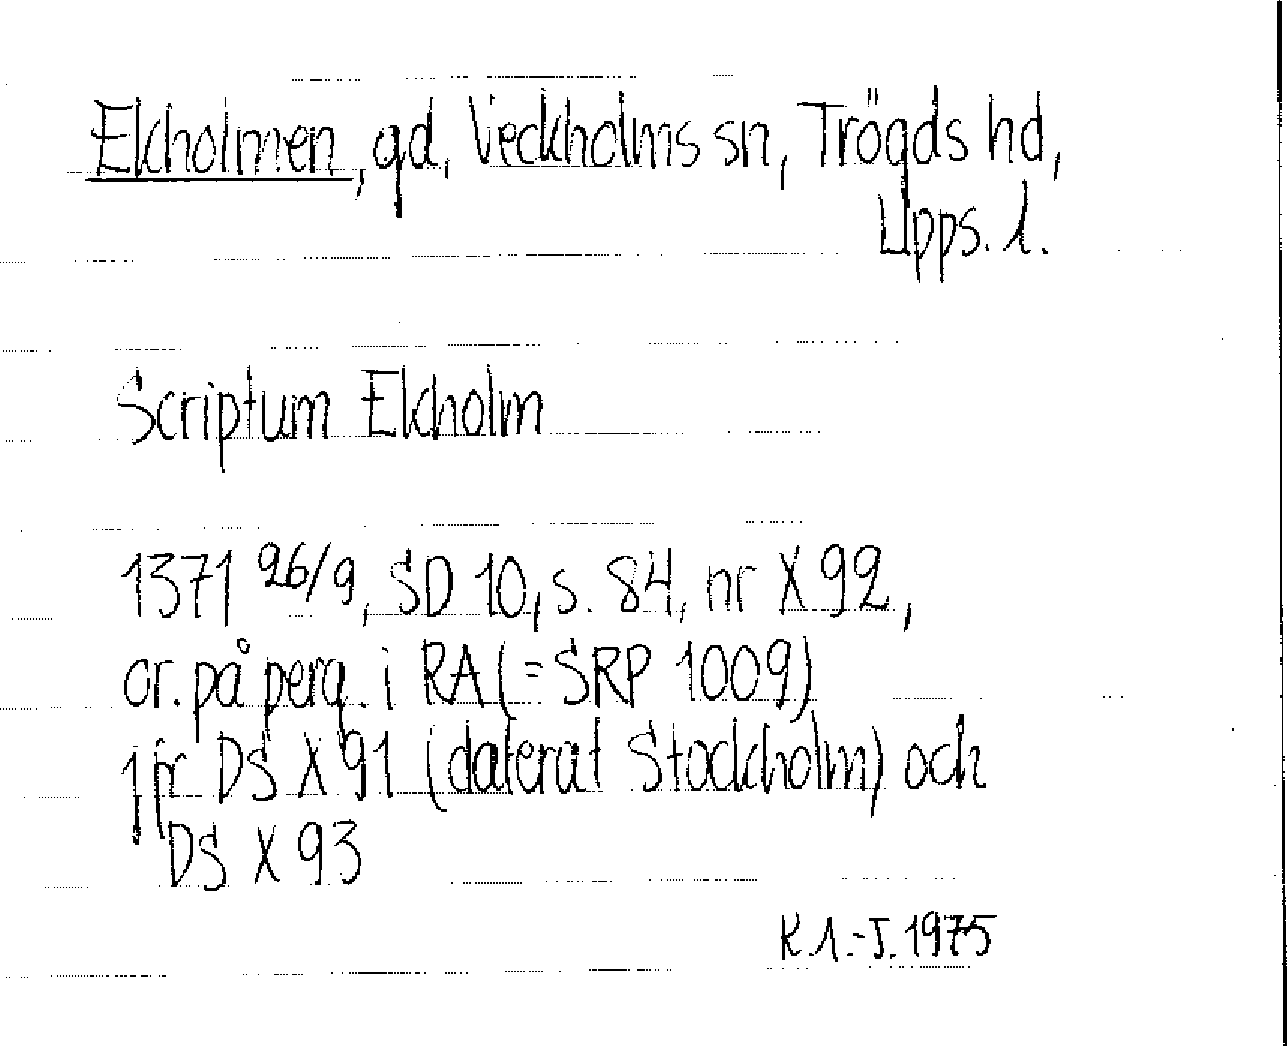 Ekholmen, gd, Veckholms sn, Trögds hd,
Upps. l.
Scriptum Ekholm
1371 26/9, SD 10, s. 84, nr X 92,
or. på perg. i RA (=SRP 1009)
jfr DS X 91 (daterat Stockholm) och
DS X 93
K.1.-J. 1975